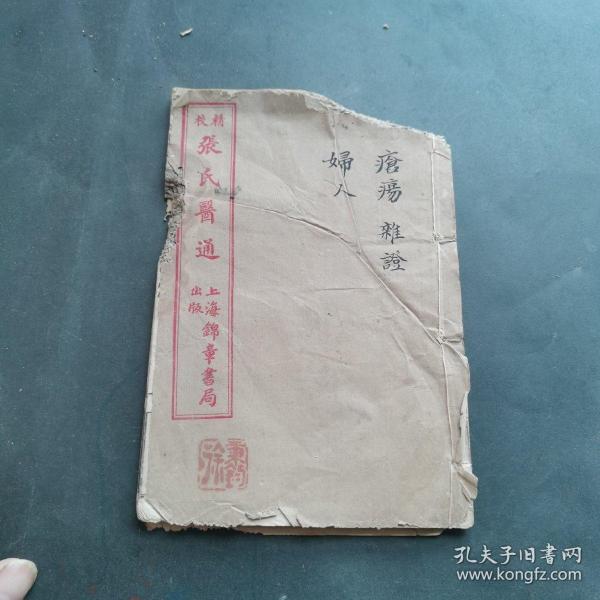 瘡瘍 雜證
婦人
精校
張氏醫通
上海錦章書局
出版
孔夫子旧书网
www.kongfz.com